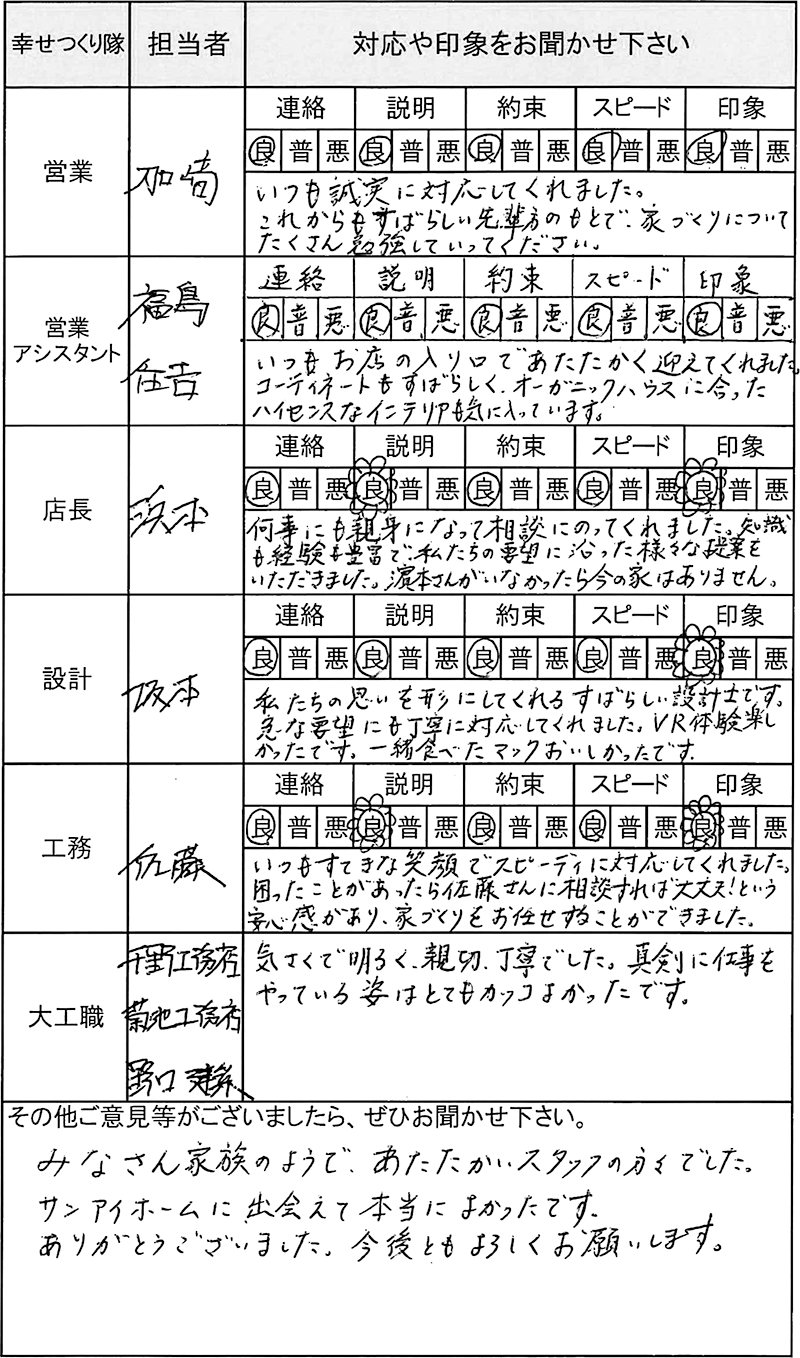 幸せつくり隊 担当者 対応や印象をお聞かせ下さい
連絡 説明 約束 スピード 印象
営業
良 普 悪 良 普 悪 良 普 悪 良 普 悪 良 普 悪
いつも誠実に対応してくれました。
これからもすばらしい先輩方のもとで、家づくりについて
たくさん勉強していってください。
連絡 説明 約束 スピード 印象
営業
アシスタント
福島
住吉
良 普 悪 良 普 悪 良 普 悪 良 普 悪 良 普 悪
いつもお店の入り口であたたかく迎えてくれました。
コーディネートもすばらしく、オーガニックハウスに合った
ハイセンスなインテリアも気に入っています。
連絡 説明 約束 スピード 印象
店長
浜本
良 普 悪 良 普 悪 良 普 悪 良 普 悪 良 普 悪
何事にも親身になって相談にのってくれました。知識
も経験も豊富で、私たちの要望に沿った様々な提案を
いただきました。濵本さんがいなかったら今の家はありません。
連絡 説明 約束 スピード 印象
設計
坂本
良 普 悪 良 普 悪 良 普 悪 良 普 悪 良 普 悪
私たちの思いを形にしてくれるすばらしい設計士です。
急な要望にも丁寧に対応してくれました。VR体験楽し
かったです。一緒食べたマックおいしかったです。
連絡 説明 約束 スピード 印象
工務
佐藤
良 普 悪 良 普 悪 良 普 悪 良 普 悪 良 普 悪
いつもすてきな笑顔でスピーディに対応してくれました。
困ったことがあったら佐藤さんに相談すれば大丈夫!という
安心感があり、家づくりをお任せすることができました。
大工職
千野工務店
菊池工務店
野口建築
気さくで明るく、親切、丁寧でした。真剣に仕事を
やっている姿はとてもカッコよかったです。
その他ご意見等がございましたら、ぜひお聞かせ下さい。
みなさん家族のようで、あたたかいスタッフの方々でした。
サンアイホームに出会えて本当によかったです。
ありがとうございました。今後ともよろしくお願いします。